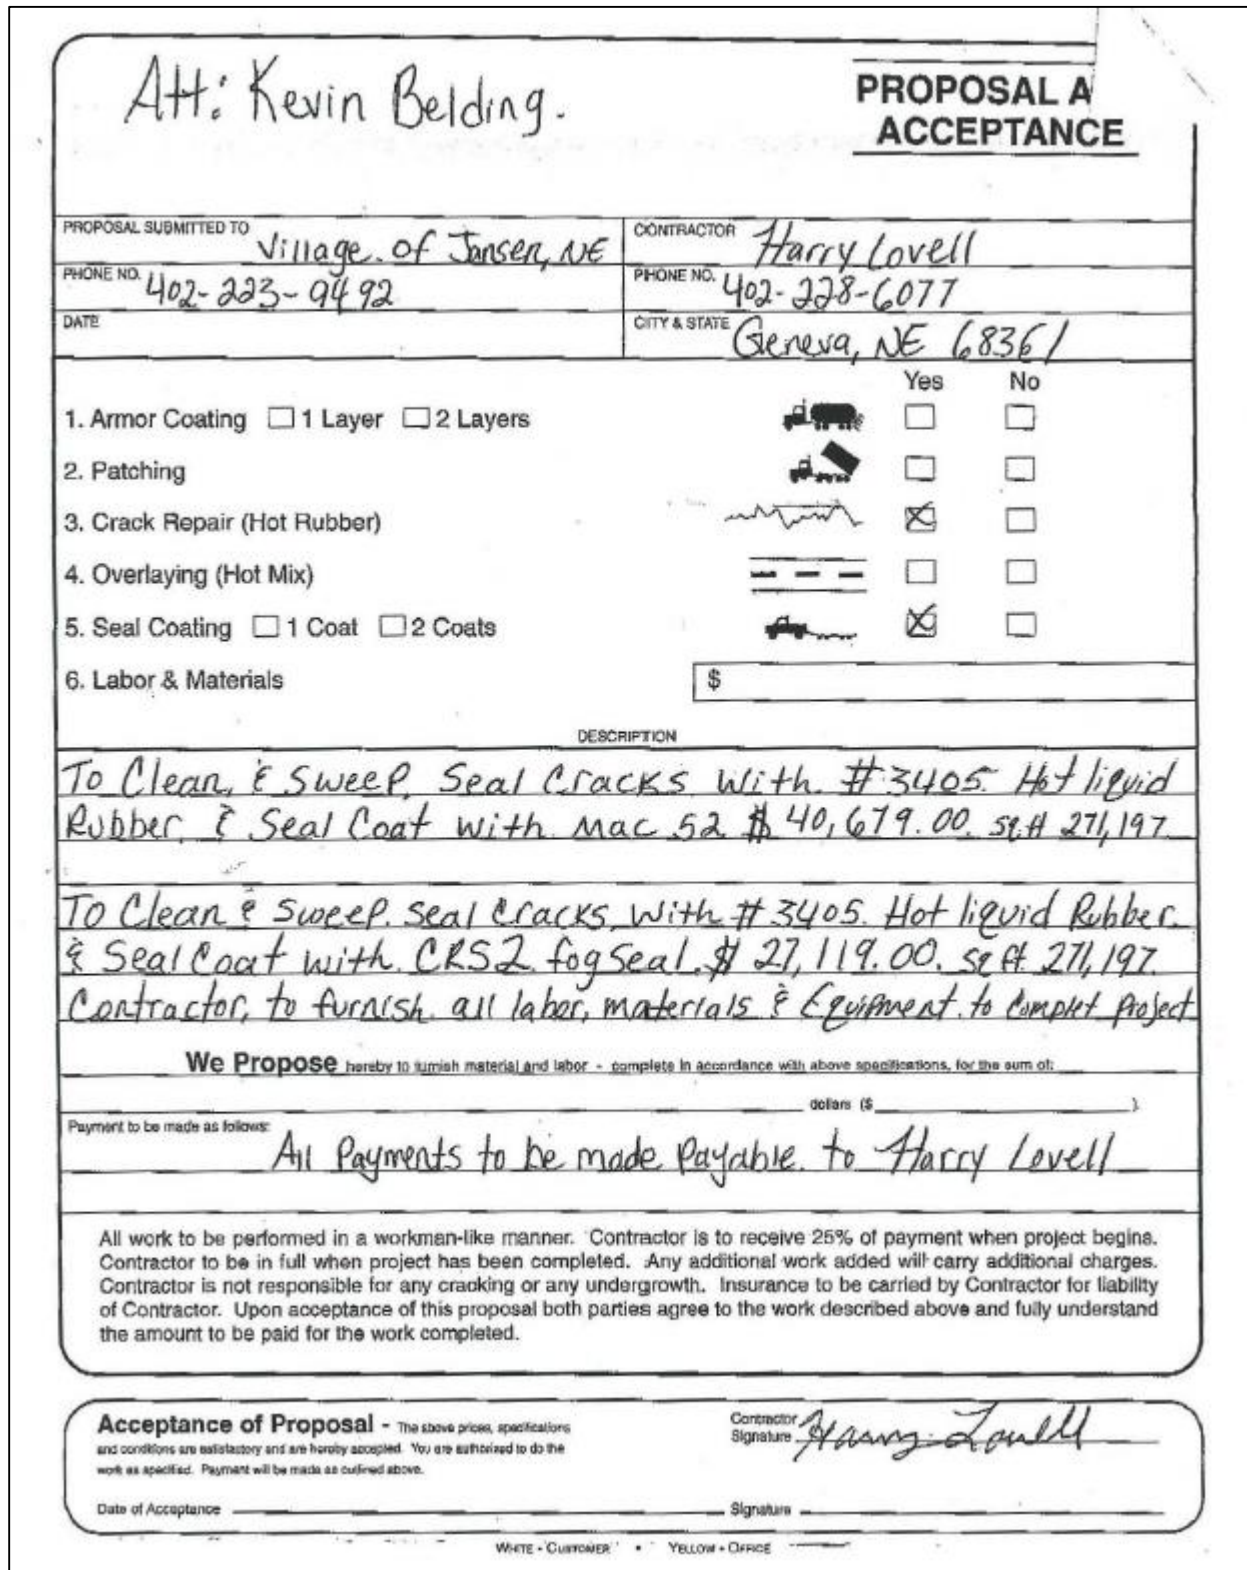 Att: Kevin Belding.
PROPOSAL A
ACCEPTANCE
PROPOSAL SUBMITTED TO Village of Jansen, NE
CONTRACTOR Harry Lovell
PHONE NO. 402-223-9492
PHONE NO. 402-228-6077
DATE
CITY & STATE Geneva, NE 68361
Yes No
1. Armor Coating 1 Layer 2 Layers
2. Patching
3. Crack Repair (Hot Rubber)
4. Overlaying (Hot Mix)
5. Seal Coating 1 Coat 2 Coats
6. Labor & Materials $
DESCRIPTION
To Clean, & Sweep, Seal Cracks With #3405 Hot liquid
Rubber & Seal Coat with Mac 52 $ 40,679.00 sq.ft 271,197
To Clean & Sweep. seal cracks with #3405. Hot liquid Rubber.
& Seal Coat with CRS2 fog Seal. $ 27,119.00. sq ft. 271,197.
Contractor, to furnish all labor, materials & Equipment. to Complet Project
We Propose hereby to furnish material and labor - complete in accordance with above specifications, for the sum of:
dollars ($ ).
Payment to be made as follows:
All Payments to be made Payable to Harry Lovell
All work to be performed in a workman-like manner. Contractor is to receive 25% of payment when project begins.
Contractor to be in full when project has been completed. Any additional work added will carry additional charges.
Contractor is not responsible for any cracking or any undergrowth. Insurance to be carried by Contractor for liability
of Contractor. Upon acceptance of this proposal both parties agree to the work described above and fully understand
the amount to be paid for the work completed.
Acceptance of Proposal - The above prices, specifications
and conditions are satisfactory and are hereby accepted. You are authorized to do the
work as specified. Payment will be made as outlined above.
Contractor
Signature Harry Lovell
Date of Acceptance
Signature
WHITE - CUSTOMER • YELLOW - OFFICE